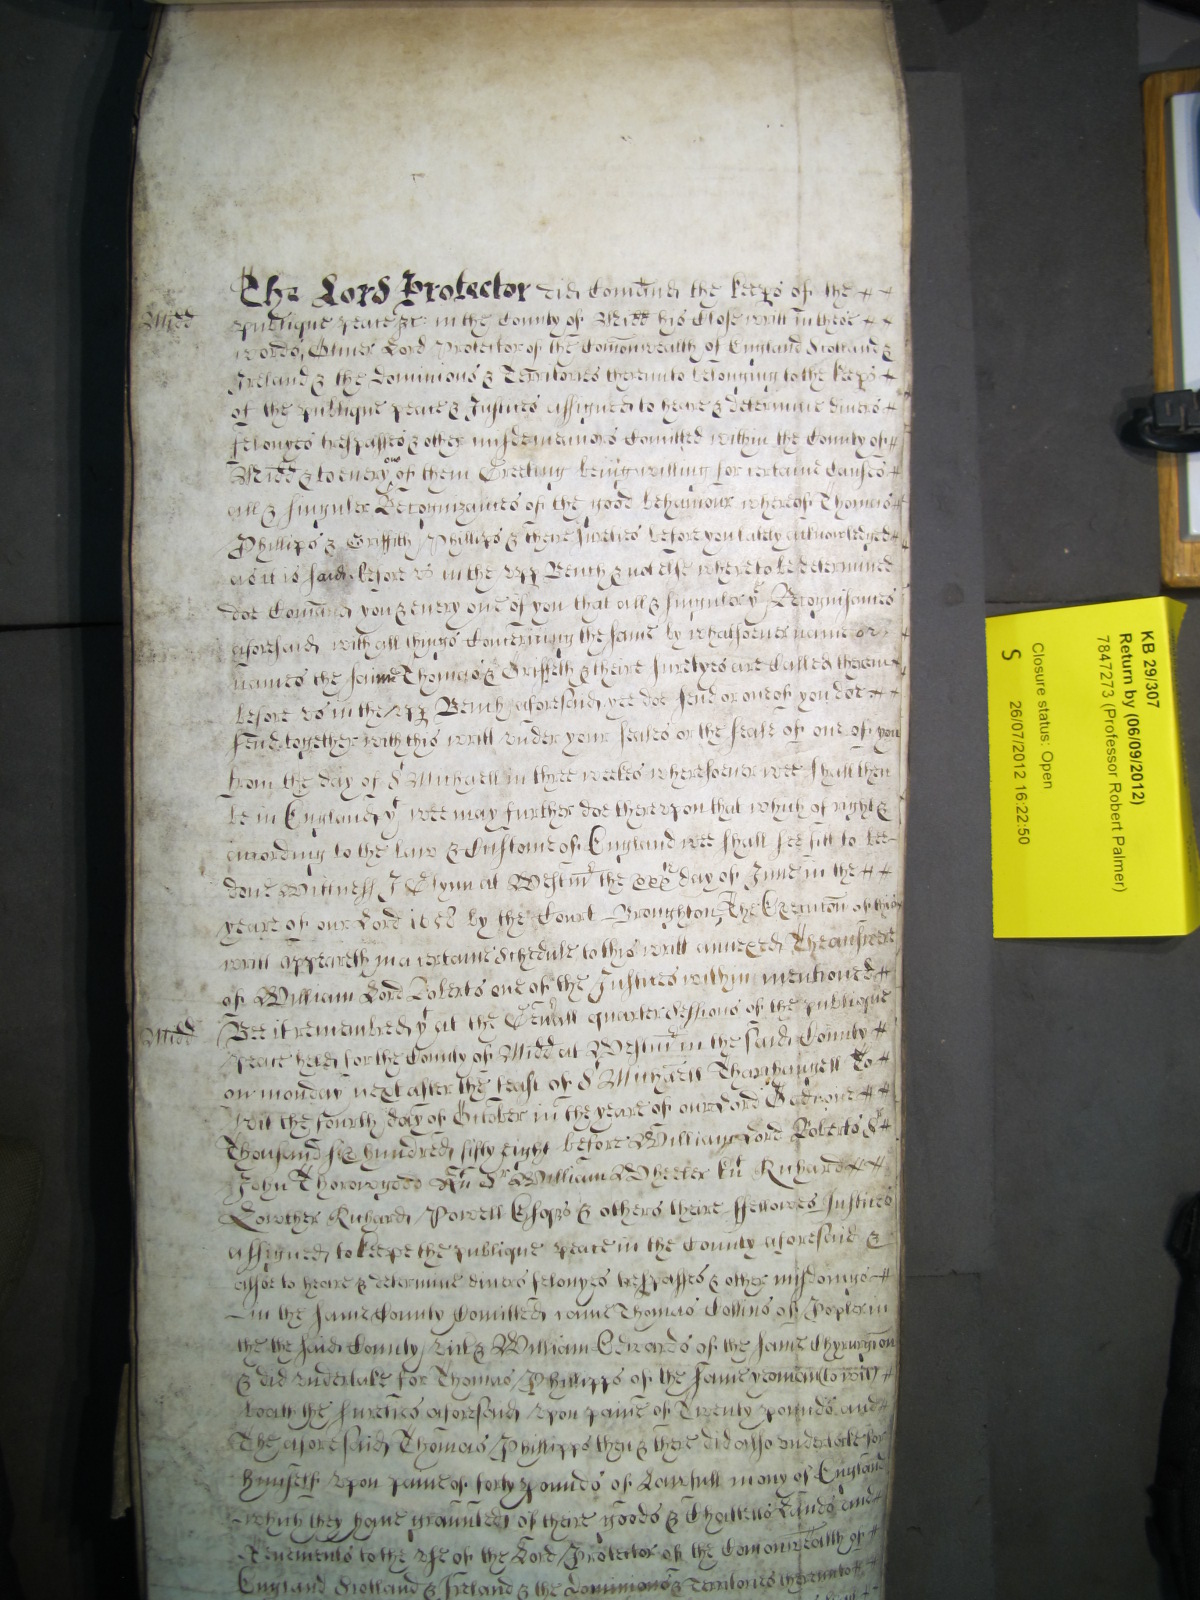 The Lord Protector did Comand the keeps of the
Midd
publique peace &c: in the County of Midd his Close writt in these
words, Oliver Lord Protector of the Comonwealth of England Scotland &
Ireland & the Dominions & Territories thereunto belonging to the keeps
of the publique peace & Justices assigned to heare & determine divers
felonyes trespasses & other misdemeanors Comitted within the County of
Midd & to every one of them Greeting being willing for certaine Causes
all & singuler Recognizances of the good behaviour whereof Thomas
Phillips & Griffith Phillips & there sureties before you lately acknowledged
as it is said before us in the upp Bench & not else where to be determined
doe Comand you & every one of you that all & singuler ye Recognisances
aforesaid with all things Concerning the same by whatsoever name or
names the same Thomas & Griffeth & theire suretyes are Called therein
before us in the upp Bench aforesaid yee doe send or one of you doe
send together with this writt under your seales or the seale of one of you
from the day of St Michaell in three weekes wheresoever wee shall then
be in England yt wee may further doe thereupon that which of right &
according to the law & Custome of England wee shall see fitt to bee
done Witness J Glynn at Westmr the xxxth day of June in the
yeare of our Lord 1658 by the Court Broughton, The Execucon of this
writt appeareth in a certaine schedule to this writt annexed, The answere
of William Lord Roberts one of the Justices within mentioned
Midd
Bee it remembred yt at the Genall quarter Sessions of the publique
peace held for the County of Midd at Westmr in the said County
on monday next after the feast of St Michaell Tharchangell To
wit the fourth day of October in the yeare of our Lord God one
Thousand six hundred fifty eight before William Lord Roberts Sr
John Thorowgood Kt Sr William Wheeler kt Richard
Lowther Richard Powell Esqrs & others theire ffellowes Justices
assigned to keepe the publique peace in the County aforesaid &
alsoe to heare & determine divers felonyes trespasses & other misdoings
in the same County Comitted came Thomas Collins of Popler in
the the said County & William Edwards of the same Chyrurgion
& did undertake for Thomas Phillipps of the same yeoman (to wit)
both the sureties aforesaid upon paine of Twenty pounds and
The aforesaid Thomas Phillipps then & there did also undertake for
himselfe upon paine of forty pounds of Lawfull mony of England
which they have graunted of there goods & Chattells Lands and
Tenements to the use of the Lord Protector of the Comonwealth of
England Scotland & Ireland & the Dominions & Territories thereunto
KB 29/307
Return by (06/09/2012)
7847273 (Professor Robert Palmer)
Closure status: Open
S 26/07/2012 16:22:50